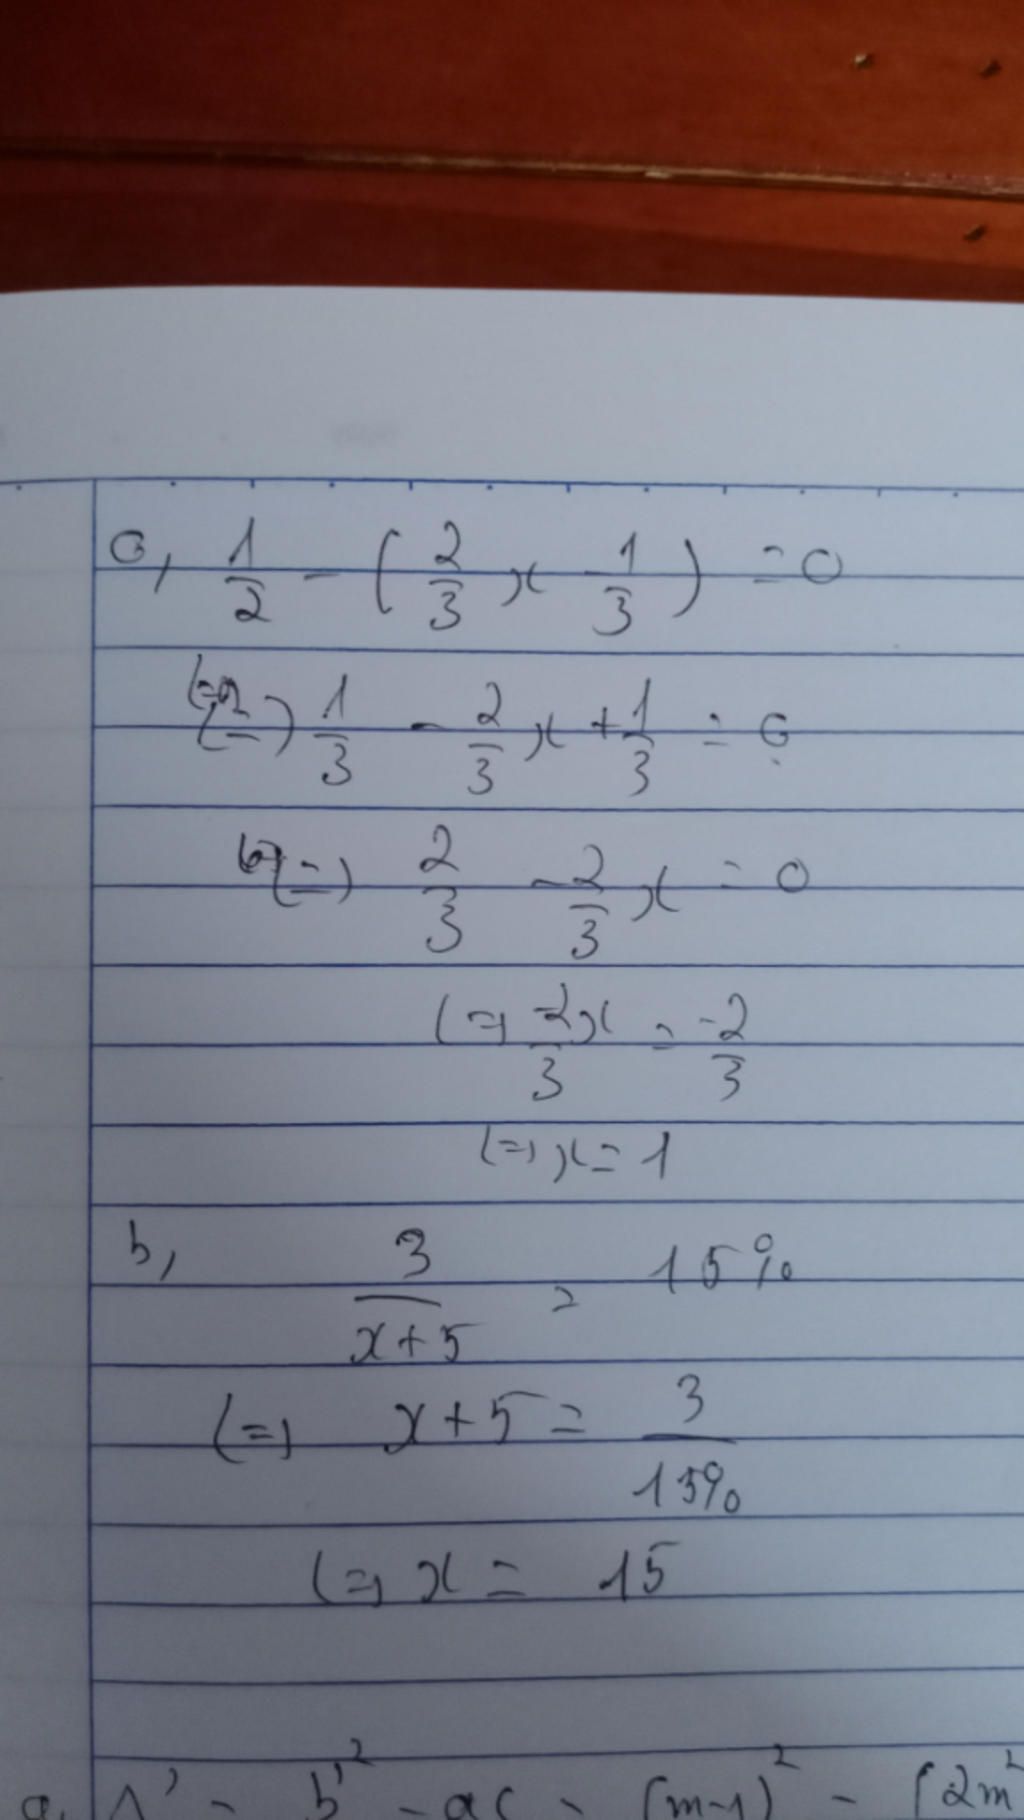 a, 1/2 - (2/3 x - 1/3) = 0
(=) 1/3 - 2/3 x + 1/3 = 0
(=) 2/3 - 2/3 x = 0
(=) -2x/3 = -2/3
(=) x = 1
b, 3/(x+5) = 15%
(=) x+5 = 3/15%
(=) x = 15
a, Δ' = b'² - ac = (m-1)² - (2m²